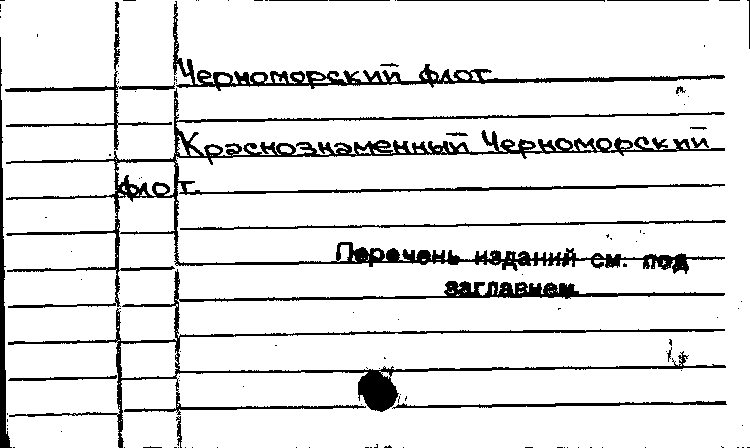 Черноморский флот
Краснознаменный Черноморский
флот.
Перечень изданий см. под
заглавием.